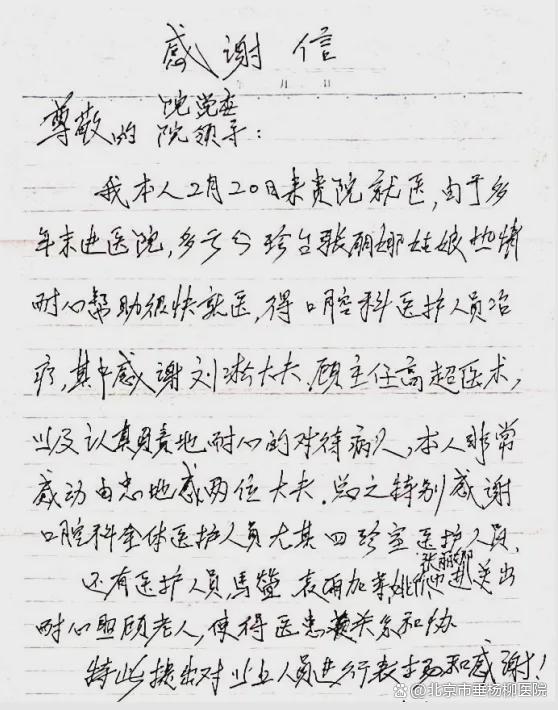 感谢信
月 日
院党委
尊敬的 院领导：
我本人2月20日来贵院就医，由于多
年未进医院，多亏分珍台张丽娜姑娘热情
耐心帮助很快就医，得口腔科医护人员治
疗，其中感谢刘淞大夫、顾主任高超医术，
以及认真负责地耐心的对待病人，本人非常
感动由忠地感两位大夫。总之特别感谢
口腔科全体医护人员尤其四珍室医护人员、
张丽娜
还有医护人员馬莹、袁雨加
耐心照顾老人，使得医患关系和协
特此提出对以上人员进行表扬和感谢！
@北京市垂杨柳医院